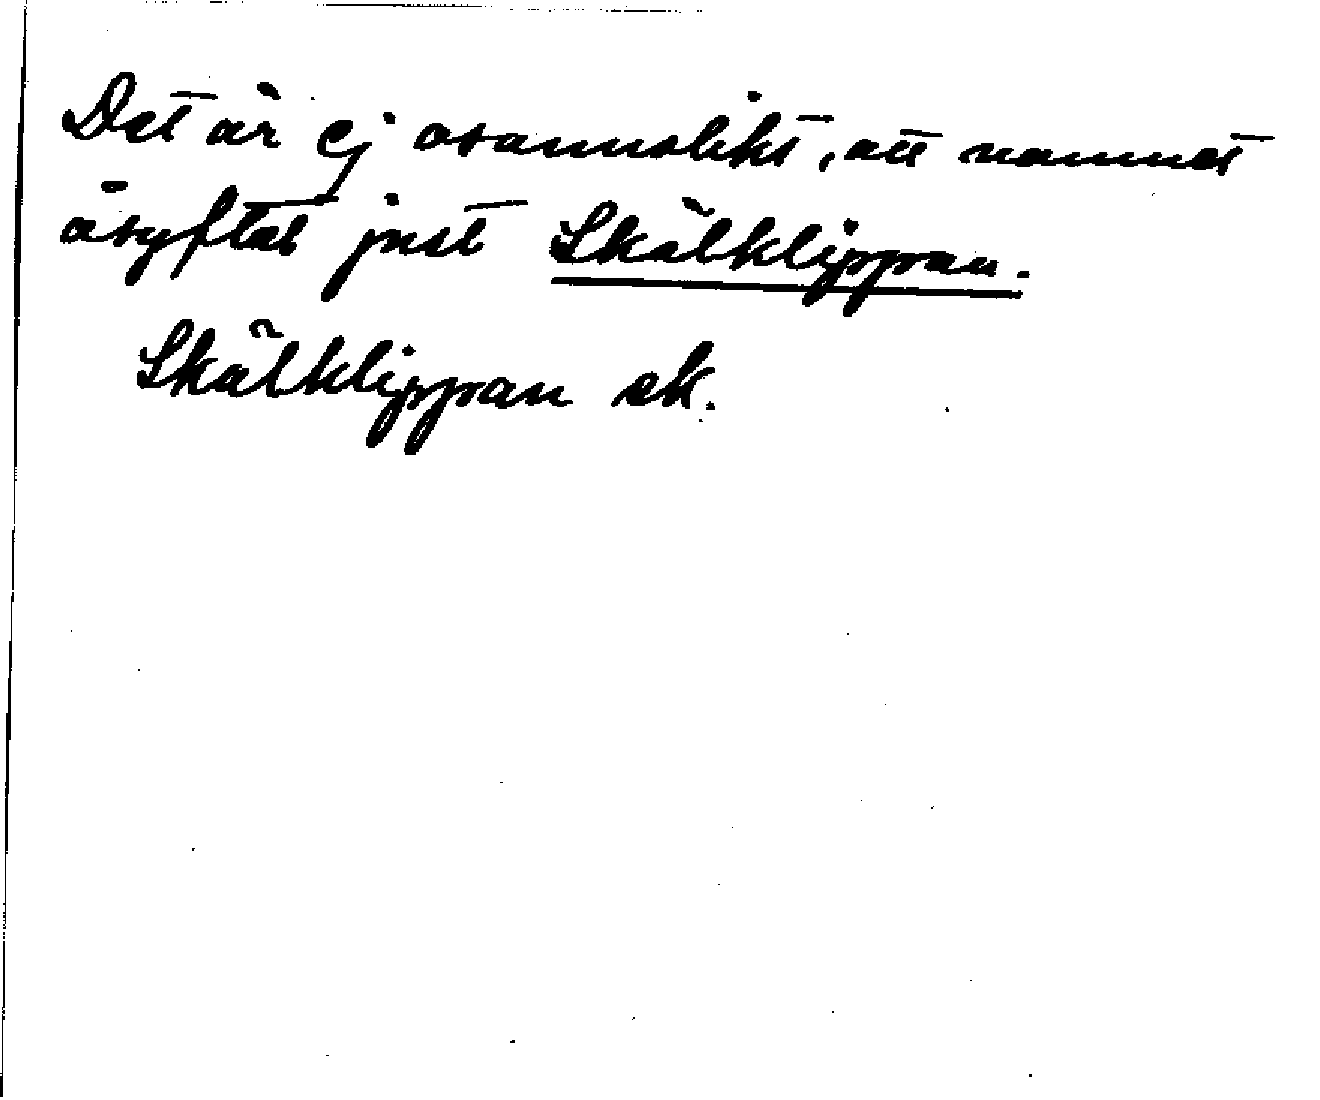 Det är ej osannolikt, att namnet
åsyftat just Skälklippan.
Skälklippan ek.